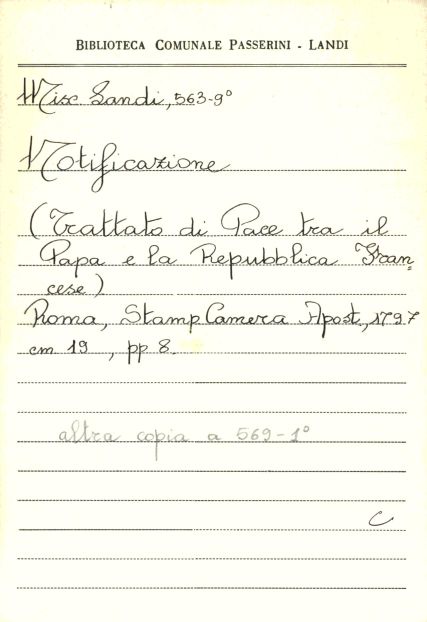 BIBLIOTECA COMUNALE PASSERINI - LANDI
Misc Landi, 563-9°
Notificazione
(Trattato di Pace tra il
Papa e la Repubblica Fran=
cese)
Roma, Stamp Camera Apost., 1797
cm 19 , pp 8.
altra copia a 569-1°
C